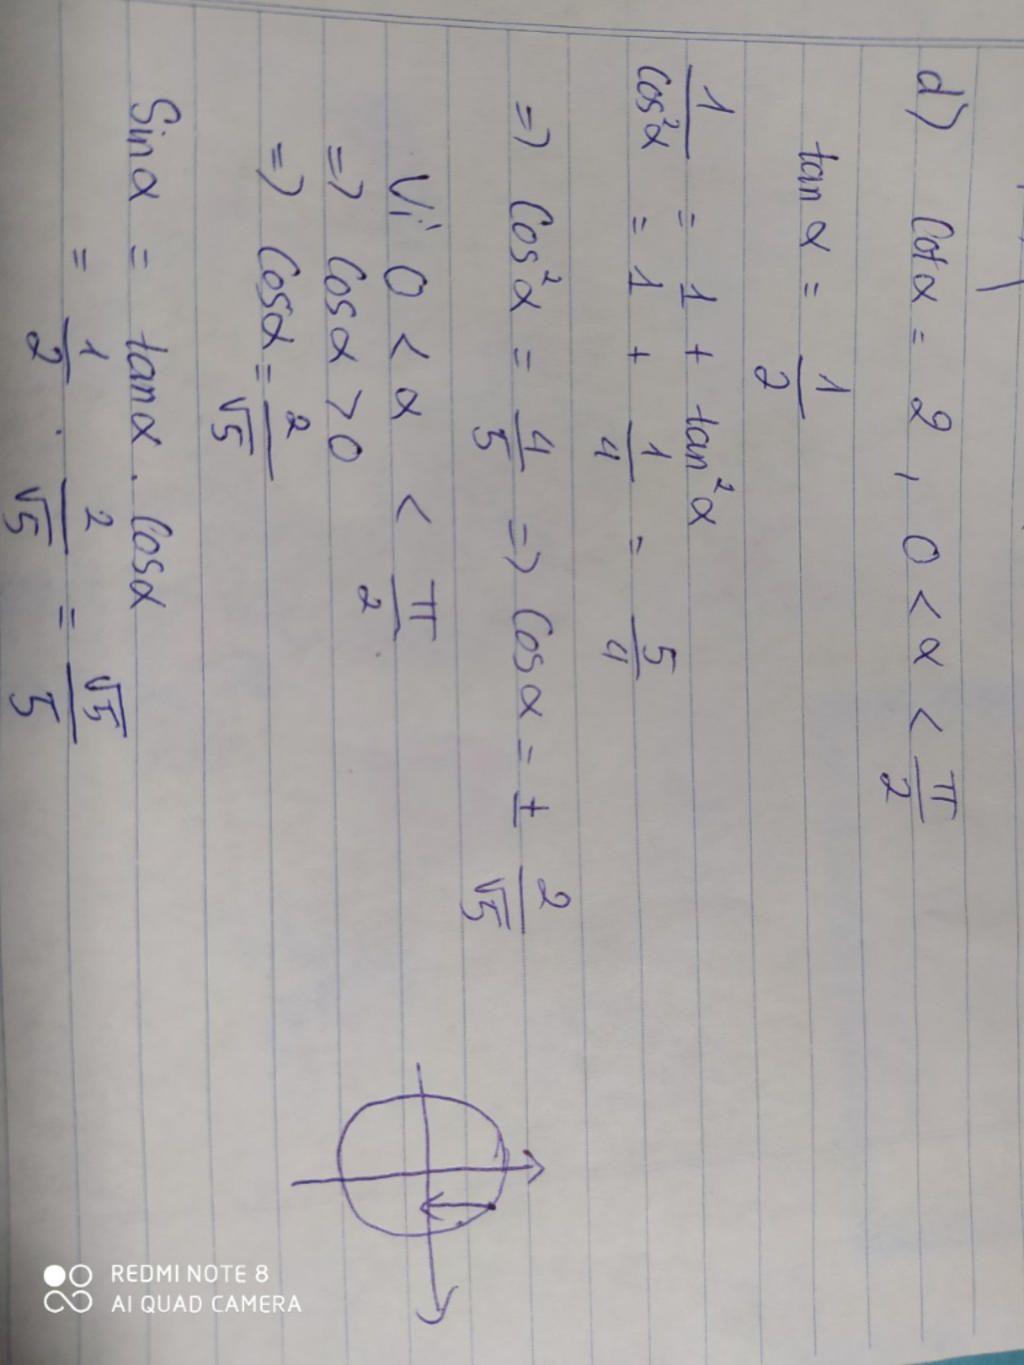 d) Cotα = 2, 0 < α < π/2
tan α = 1/2
1/Cos²α = 1 + tan²α
= 1 + 1/4 = 5/4
=> Cos²α = 4/5 => Cosα = ± 2/√5
Vì 0 < α < π/2
=> Cosα > 0
=> Cosα = 2/√5
Sinα = tanα . Cosα
= 1/2 . 2/√5 = √5/5
REDMI NOTE 8
AI QUAD CAMERA